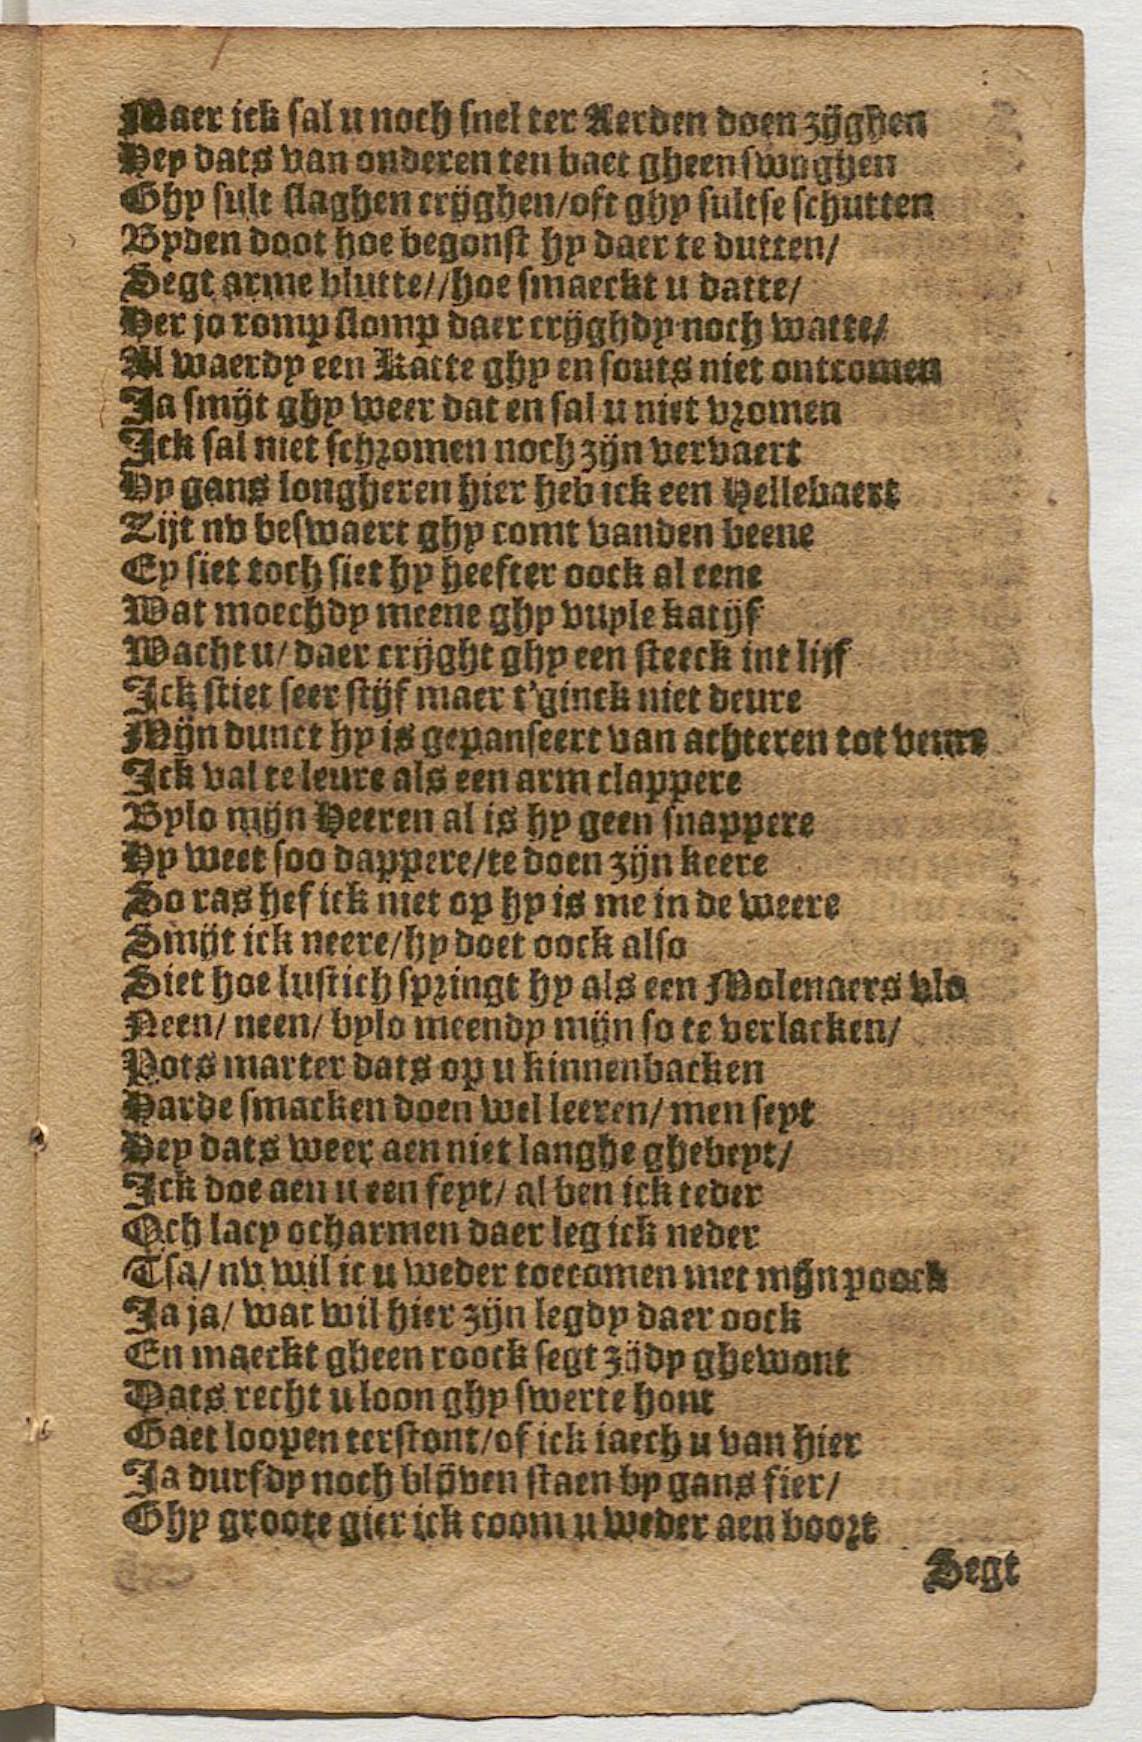 Maer ick sal u noch snel ter Aerden doen zijghen
Hey dats van onderen ten baet gheen swijghen
Ghy sult slaghen crijghen/oft ghy sultse schutten
Byden doot hoe begonst hy daer te dutten/
Segt arme blutte//hoe smaeckt u datte/
Her jo romp slomp daer crijghdy noch watte/
Al waerdy een Katte ghy en souts niet ontcomen
Ja smijt ghy weer dat en sal u niet vromen
Ick sal niet schromen noch zijn vervaert
By gans longheren hier heb ick een Hellebaert
Zijt nv beswaert ghy comt vanden beene
Ey siet toch siet hy heefter oock al eene
Wat moechdy meene ghy vuyle katijf
Wacht u/ daer crijght ghy een steeck int lijf
Ick stiet seer stijf maer t'ginck niet deure
Mijn dunct hy is gepanseert van achteren tot veure
Ick val te leure als een arm clappere
Bylo mijn Heeren al is hy geen snappere
Hy weet soo dappere/te doen zijn keere
So ras hef ick niet op hy is me in de weere
Smijt ick neere/hy doet oock also
Siet hoe lustich springt hy als een Molenaers vlo
Neen/ neen/ bylo meendy mijn so te verlacken/
Pots marter dats op u kinnenbacken
Harde smacken doen wel leeren/ men seyt
Hey dats weer aen niet langhe ghebeyt/
Ick doe aen u een feyt/ al ben ick teder
Och lacy ocharmen daer leg ick neder
Tsa/ nv wil ic u weder toecomen met mijn poock
Ja ja/ wat wil hier zijn legdy daer oock
En maeckt gheen roock segt zijdy ghewont
Dats recht u loon ghy swerte hont
Gaet loopen terstont/of ick iaech u van hier
Ja durfdy noch blijven staen by gans fier/
Ghy groote gier ick coom u weder aen boort
Segt